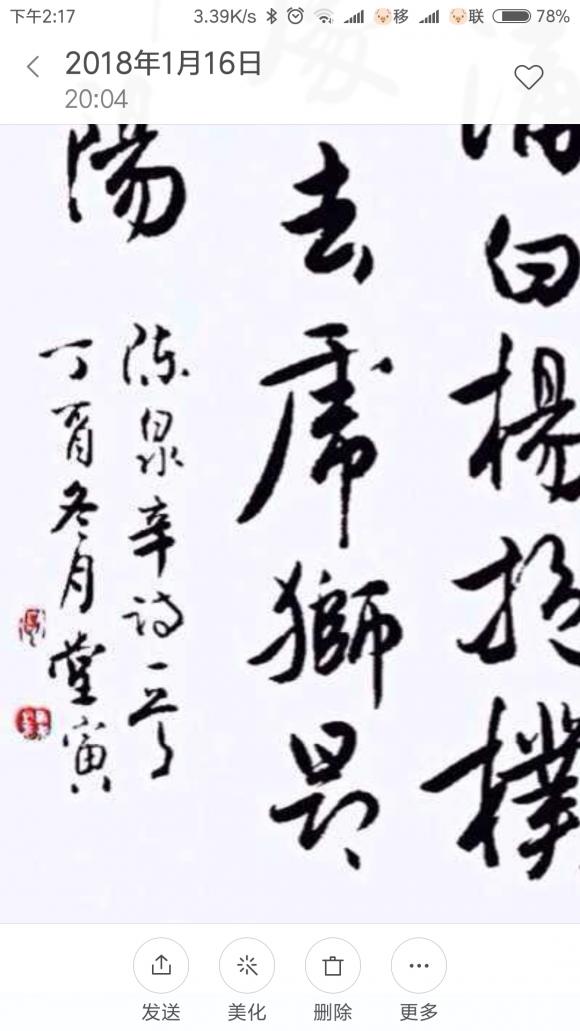 下午2:17 3.39K/s 移 联 78%
2018年1月16日
20:04
白楊 樸
去虎獅
陽
陈泉辛诗一首
丁酉冬月堂寅
发送 美化 删除 更多